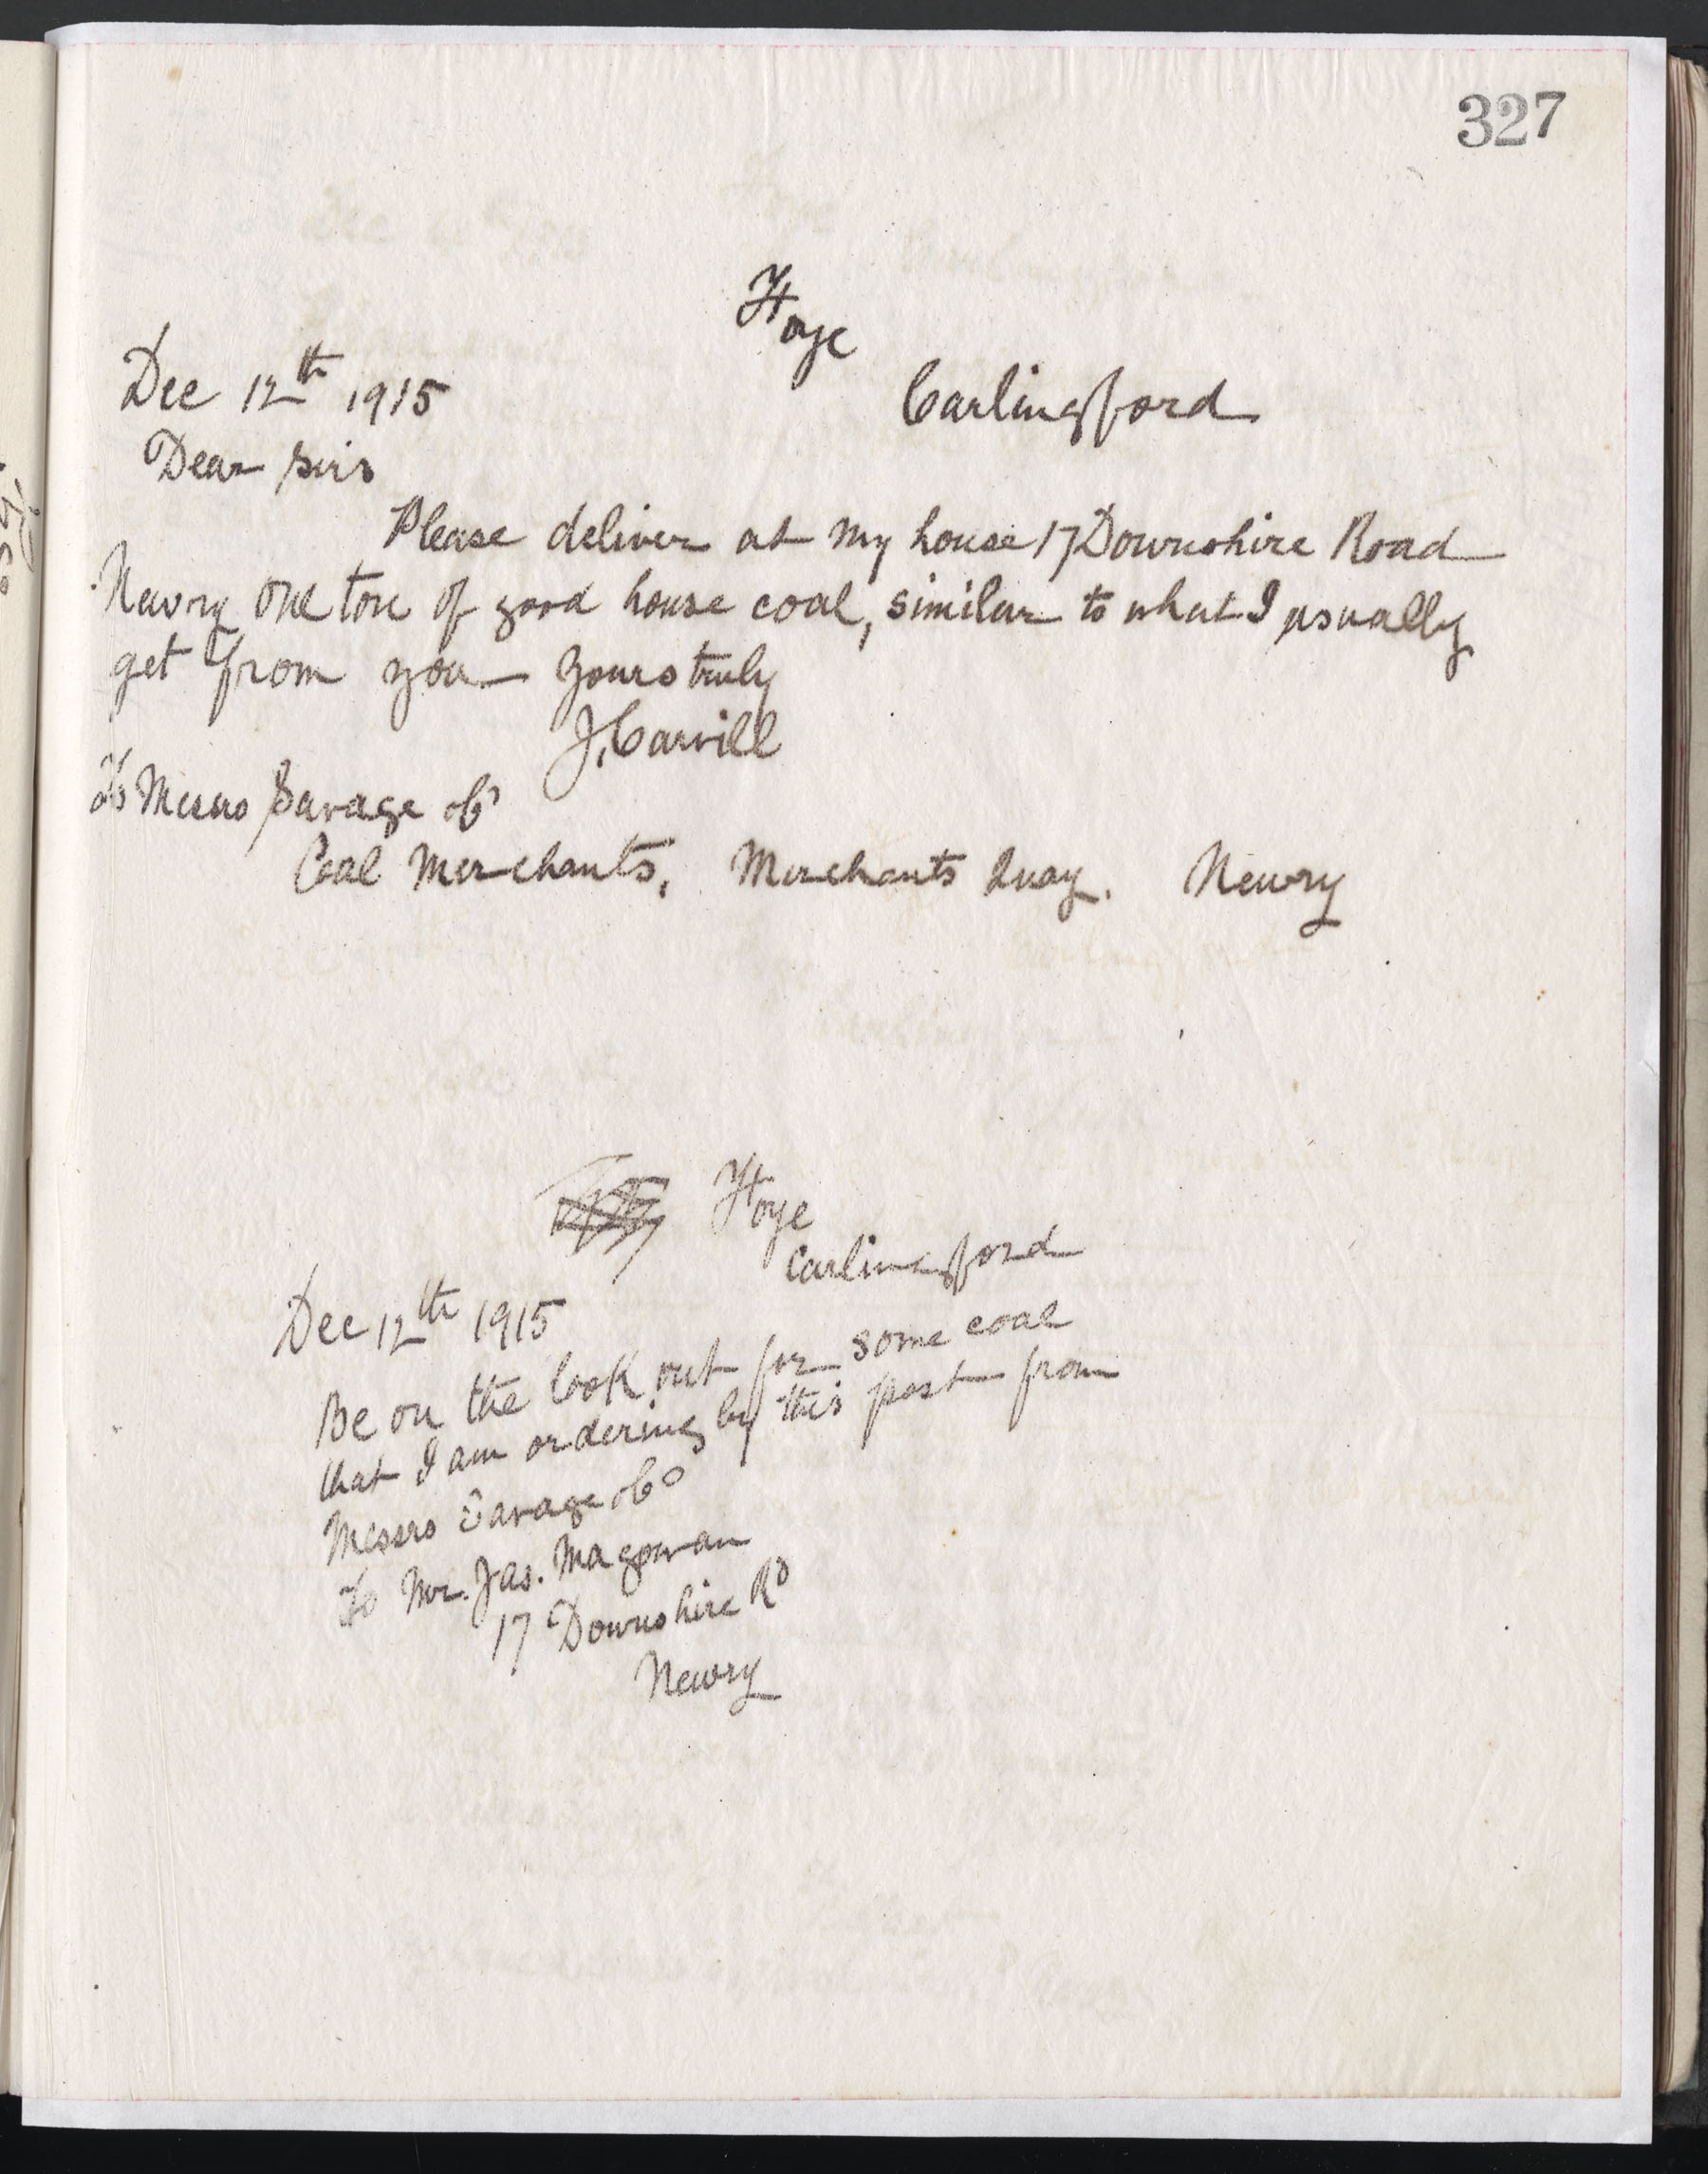 327
Hoye
Dec 12th 1915
Carlingford
Dear Sirs
Please deliver at my house 17 Downshire Road
Newry one ton of good house coal, similar to what I usually
get from you Yours truly
J. Carvill
To Messrs Savage & Co
Coal Merchants, Merchants Quay. Newry
Hoye
Carlingford
Dec 12th 1915
Be on the look out for some coal
that I am ordering by this post from
Messrs Savage & Co
To Mr. Jas. Magowan
17 Downshire Rd
Newry